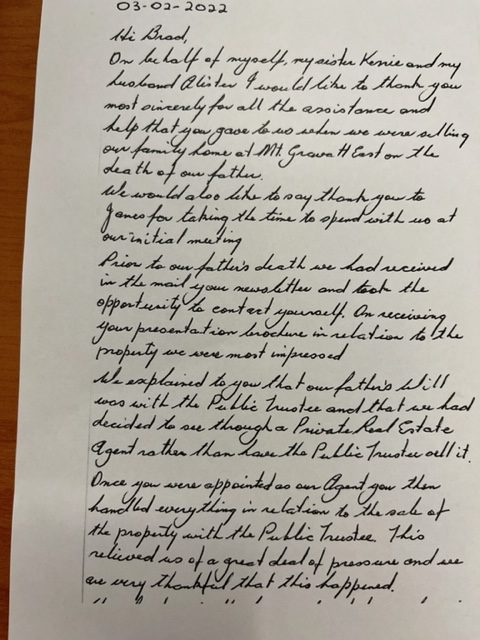 03-02-2022
Hi Brad,
On behalf of myself, my sister Kerrie and my
husband Alister I would like to thank you
most sincerely for all the assistance and
help that you gave to us when we were selling
our family home at Mt. Gravatt East on the
death of our father.
We would also like to say thank you to
James for taking the time to spend with us at
our initial meeting
Prior to our father's death we had received
in the mail your newsletter and took the
opportunity to contact yourself. On receiving
your presentation brochure in relation to the
property we were most impressed
We explained to you that our father's Will
was with the Public Trustee and that we had
decided to see through a Private Real Estate
Agent rather than have the Public Trustee sell it.
Once you were appointed as our Agent you then
handled everything in relation to the sale of
the property with the Public Trustee. This
relieved us of a great deal of pressure and we
are very thankful that this happened.